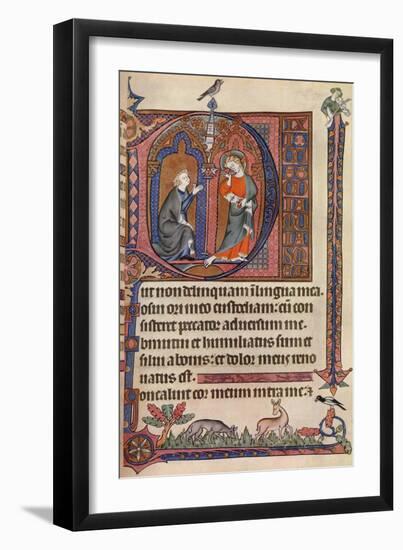 ut non delinquam ī lingua mea
osui ori meo custodiam: cū con
sisteret peccator adversum me.
bmutui et humiliatus sum et
silui a bonis: et dolor meus reno
vatus est.
oncaluit cor meum intra me: ⁊